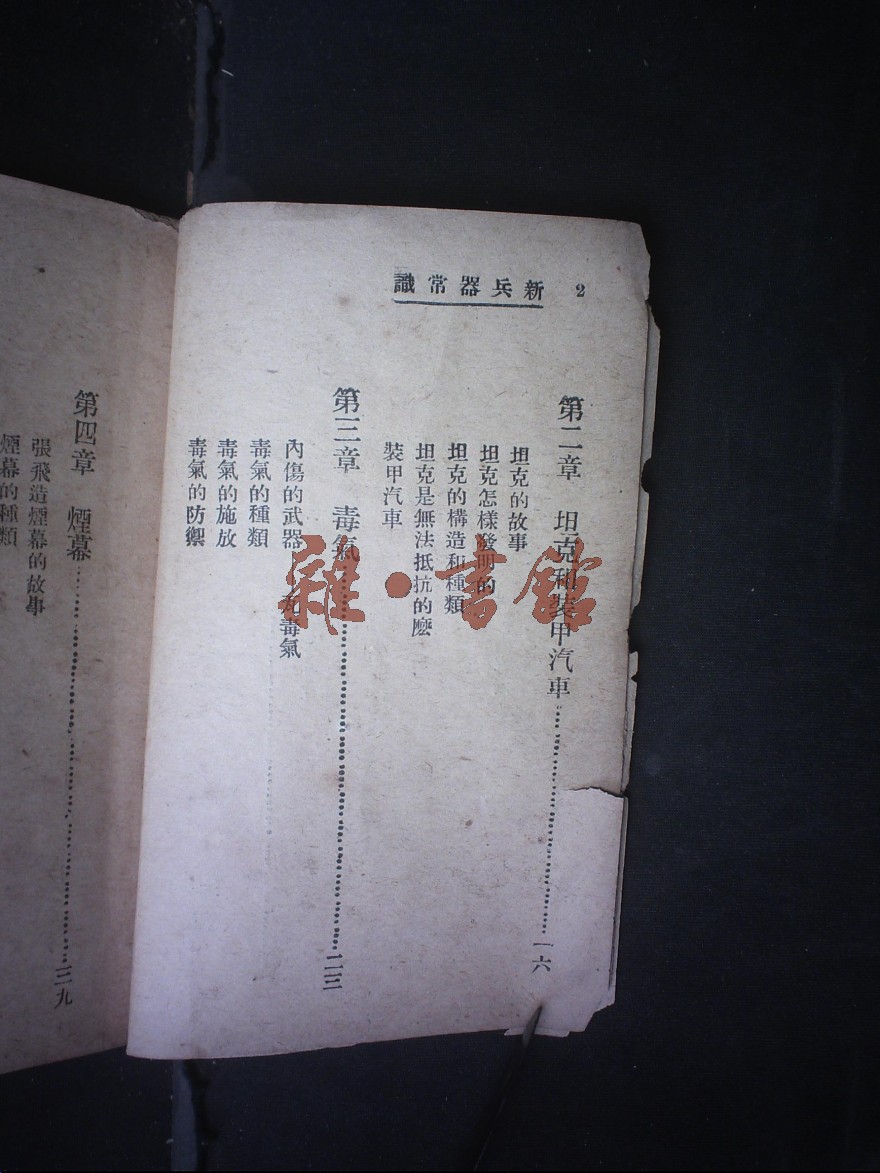 2 新兵器常識
第二章 坦克和裝甲汽車……一六
坦克的故事
坦克怎樣發明的
坦克的構造和種類
坦克是無法抵抗的麽
裝甲汽車
第三章 毒氣……二三
內傷的武器 毒氣
毒氣的種類
毒氣的施放
毒氣的防禦
第四章 煙幕……三九
張飛造煙幕的故事
煙幕的種類
雜·書館